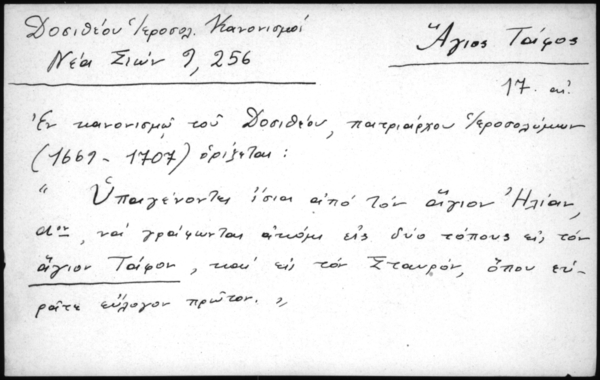 Δοσιθέου Ἱεροσολ. Κανονισμοί
Νέα Σιών 9, 256
Ἅγιος Τάφος
17. αἰ.
Ἐν κανονισμῷ τοῦ Δοσιθέου, πατριάρχου Ἱεροσολύμων
(1669 - 1707) ὁρίζεται :
" Ὑπαγένοντες ἴσια ἀπό τόν ἅγιον Ἠλίαν,
αον, νά γράφωνται ἀκόμι εἰς δύο τόπους εἰς τόν
ἅγιον Τάφον, καί εἰς τόν Σταυρόν, ὅπου εὑ-
ρᾶτε εὔλογον πρῶτον. "